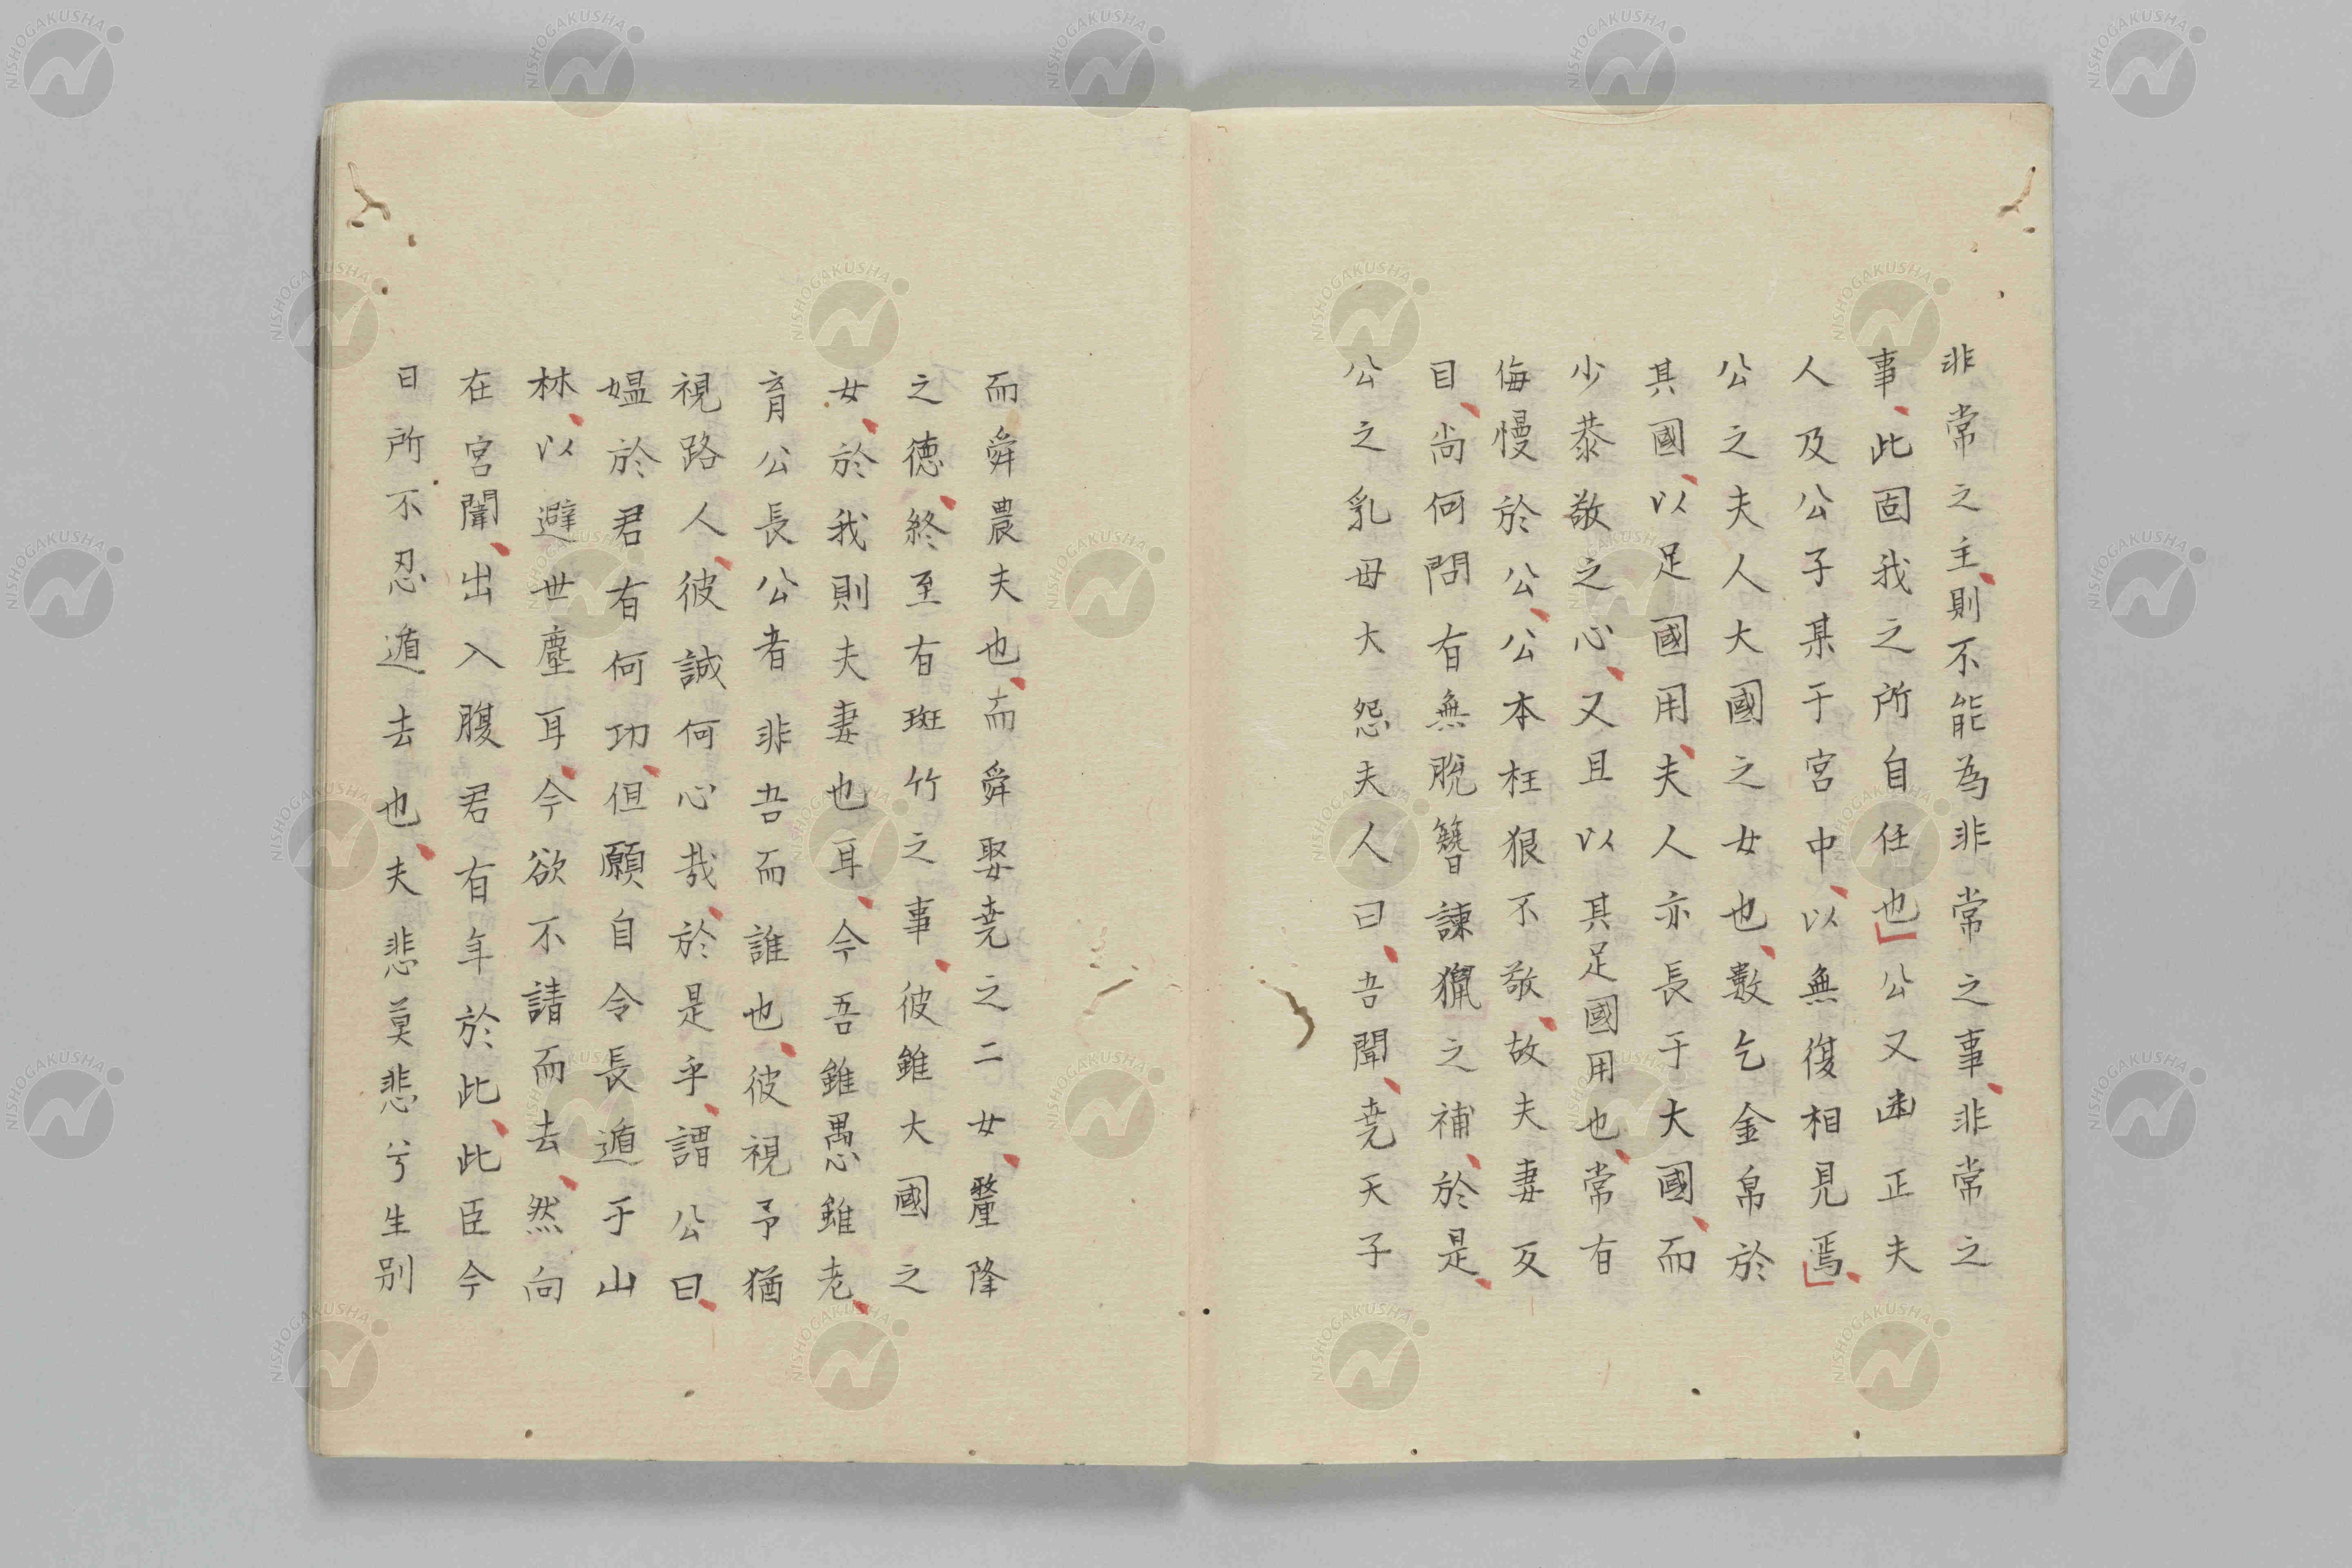 非常之主則不能為非常之事非常之
事此固我之所自任也公又幽正夫
人及公子某于宮中以無復相見焉
公之夫人大國之女也數乞金帛於
其國以足國用夫人亦長于大國而
少恭敬之心又且以其足國用也常有
侮慢於公公本枉狠不敬故夫妻反
目尚何問有無脫簪諫獵之補於是
公之乳母大怨夫人曰吾聞尭天子
而舜農夫也而舜娶尭之二女釐降
之德終至有斑竹之事彼雖大國之
女於我則夫妻也耳今吾雖愚雖老
育公長公者非吾而誰也彼視予猶
視路人彼誠何心哉於是乎謂公曰
媼於君有何功但願自令長遁于山
林以避世塵耳今欲不請而去然向
在宮闈出入腹君有年於此此臣今
日所不忍遁去也夫悲莫悲兮生別
NISHOGAKUSHA